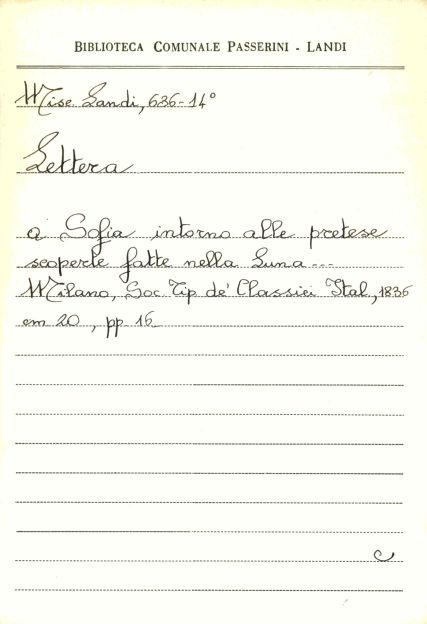 BIBLIOTECA COMUNALE PASSERINI - LANDI
Misc. Landi, 636-14°
Lettera
a Sofia intorno alle pretese
scoperte fatte nella Luna...
Milano, Soc Tip de' Classici Ital, 1836
cm 20, pp 16
C